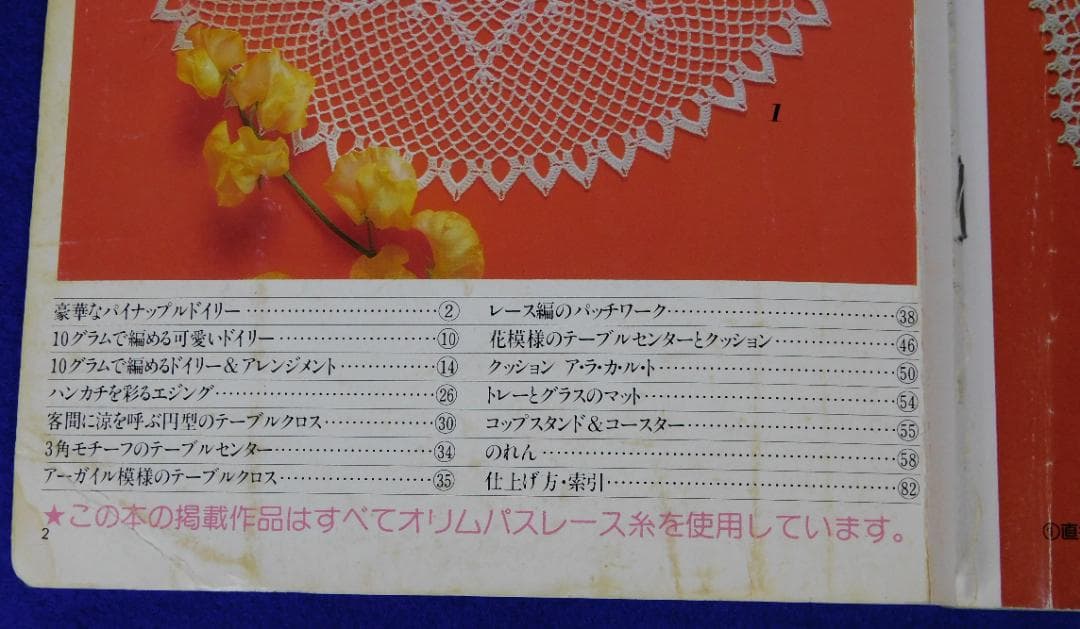 1
豪華なパイナップルドイリー……………………②
10グラムで編める可愛いドイリー………………⑩
10グラムで編めるドイリー＆アレンジメント…………⑭
ハンカチを彩るエジング……………………㉖
客間に涼を呼ぶ円型のテーブルクロス……………㉚
3角モチーフのテーブルセンター………………㉞
アーガイル模様のテーブルクロス………………㉟
レース編のパッチワーク……………………㊳
花模様のテーブルセンターとクッション……………㊻
クッション ア・ラ・カ・ル・ト……………………㊿
トレーとグラスのマット……………………54
コップスタンド＆コースター…………………55
のれん………………………………58
仕上げ方・索引…………………………82
★この本の掲載作品はすべてオリムパスレース糸を使用しています。
2
①直